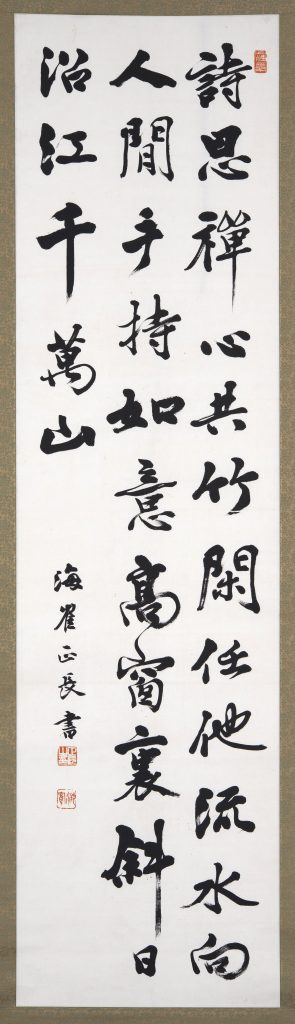 詩思禪心共竹閑任他流水向
人間手持如意高窗裏斜日
沿江千萬山
海隺正長書